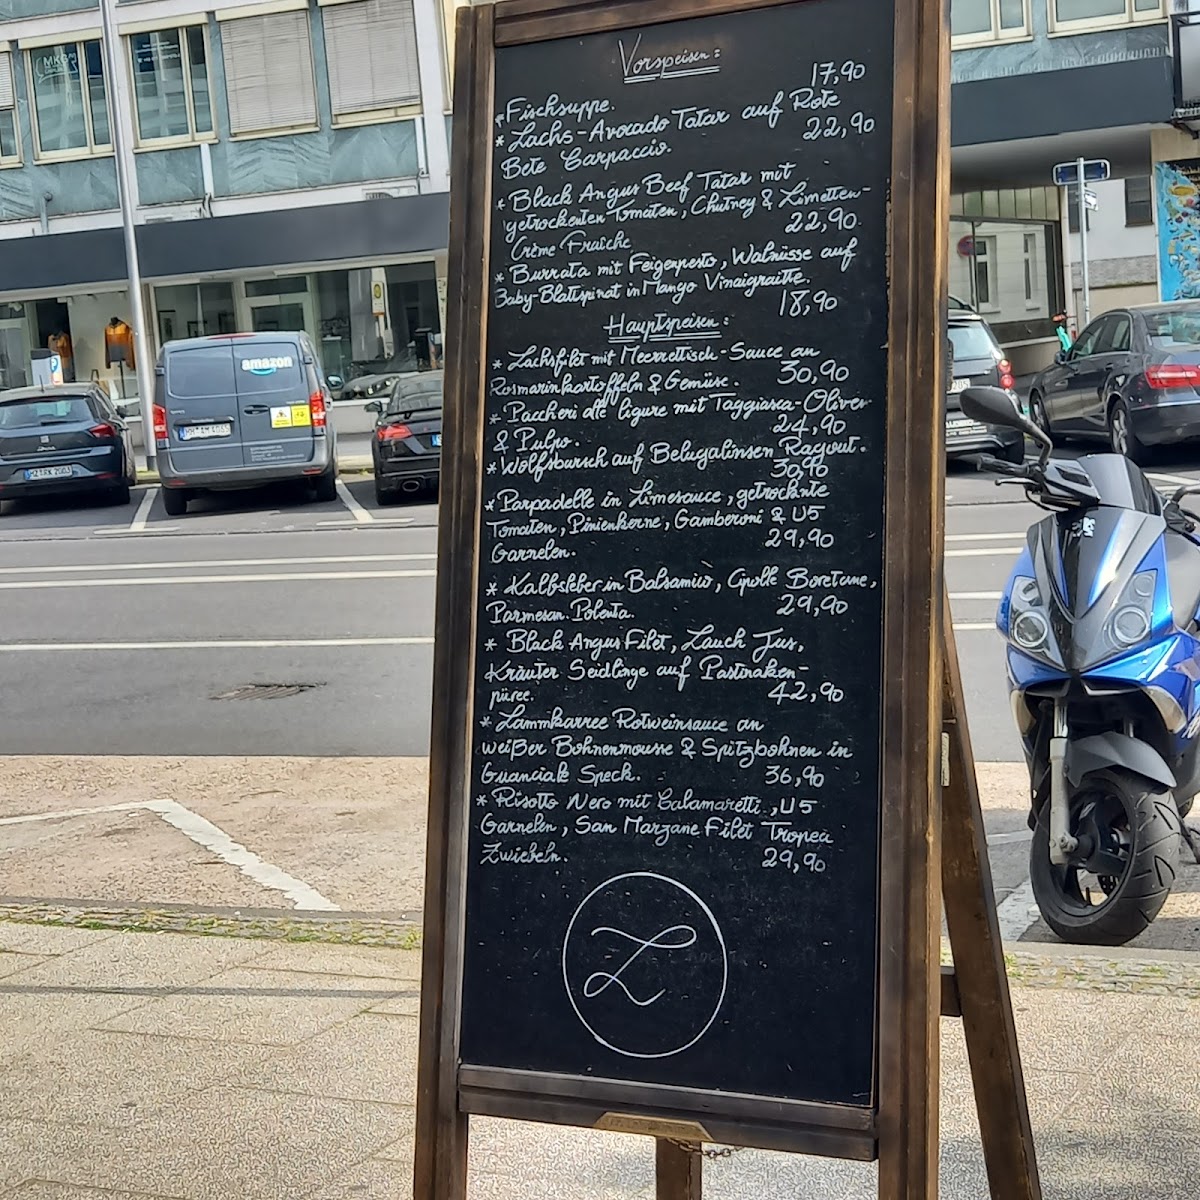 Vorspeisen:
Fischsuppe. 17,90
* Lachs-Avocado Tatar auf Rote
Bete Carpaccio. 22,90
* Black Angus Beef Tatar mit
getrockenten Tomaten, Chutney & Limetten-
Crème Fraîche 22,90
* Burrata mit Feigenpesto, Walnüsse auf
Baby-Blattspinat in Mango Vinaigraitte.
18,90
Hauptspeisen:
* Lachsfilet mit Meerrettisch-Sauce an
Rosmarinkartoffeln & Gemüse. 30,90
* Paccheri alle ligure mit Taggiasca-Oliven
& Pulpo. 24,90
* Wolfsbarsch auf Belugalinsen Ragout.
30,90
* Parpadelle in Limesauce, getrocknte
Tomaten, Pinienkerne, Gamberoni & U5
Garnelen. 29,90
* Kalbsleber in Balsamico, Cipolle Boretane,
Parmesan Polenta. 29,90
* Black Angus Filet, Lauch Jus,
Kräuter Seidlinge auf Pastinaken-
püree. 42,90
* Lammkarree Rotweinsauce an
weißer Bohnenmousse & Spitzbohnen in
Guanciale Speck. 36,90
* Risotto Nero mit Calamaretti, U5
Garnelen, San Marzane Filet Tropea
Zwiebeln. 29,90
Z
amazon
MKG